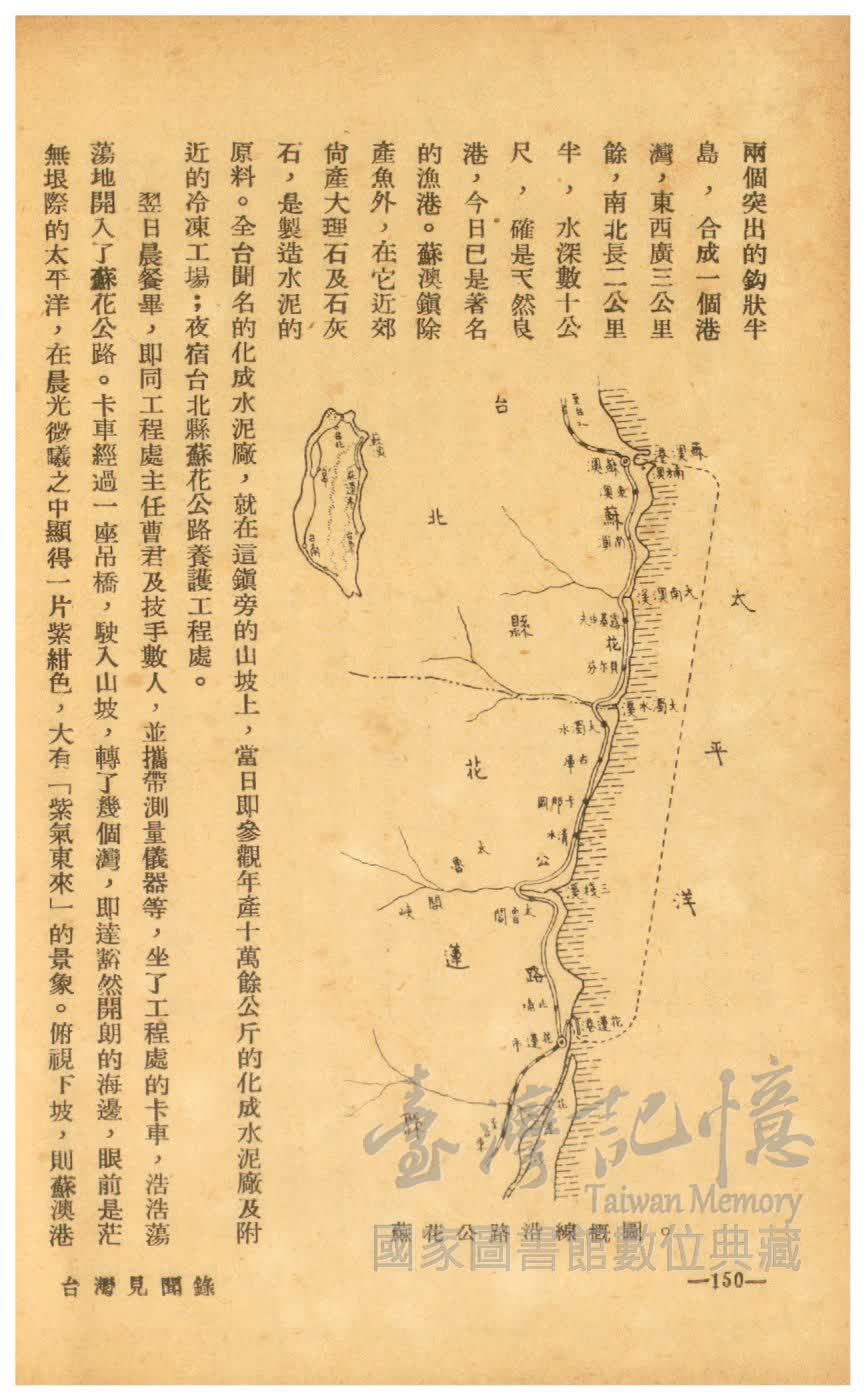 兩個突出的鈎狀半
島，合成一個港
灣，東西廣三公里
餘，南北長二公里
半，水深數十公
尺，確是天然良
港，今日已是著名
的漁港。蘇澳鎭除
產魚外，在它近郊
尙產大理石及石灰
石，是製造水泥的
原料。全台聞名的化成水泥廠，就在這鎭旁的山坡上，當日即參觀年產十萬餘公斤的化成水泥廠及附
近的冷凍工場；夜宿台北縣蘇花公路養護工程處。
翌日晨餐畢，即同工程處主任曹君及技手數人，並攜帶測量儀器等，坐了工程處的卡車，浩浩蕩
蕩地開入了蘇花公路。卡車經過一座吊橋，駛入山坡，轉了幾個灣，即達豁然開朗的海邊，眼前是茫
無垠際的太平洋，在晨光微曦之中顯得一片紫紺色，大有「紫氣東來」的景象。俯視下坡，則蘇澳港
台北縣
花蓮縣
太平洋
蘇花公路
蘇澳港
南方澳
蘇澳
東澳
南澳
大南澳溪
大濁水溪
大濁水
卡那岡
清水
三棧溪
太魯閣
太魯閣峽
北埔
花蓮港
花蓮市
蘇花公路沿線概圖。
—150—
台灣見聞錄
臺灣記憶
Taiwan Memory
國家圖書館數位典藏